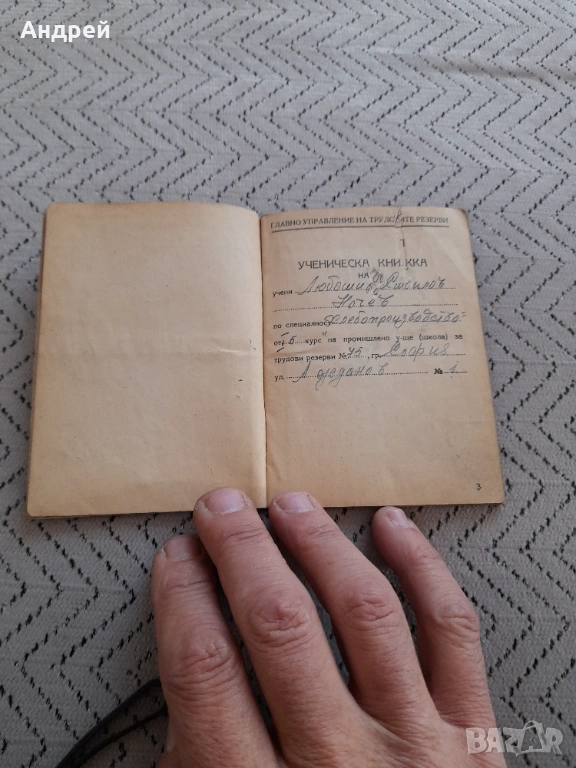 Андрей
ГЛАВНО УПРАВЛЕНИЕ НА ТРУДОВИТЕ РЕЗЕРВИ
УЧЕНИЧЕСКА КНИЖКА
НА
учени Любомир Стоилов
Начев
по специалност Хлебопроизводство
от I б курс на промишлено у-ще (школа) за
трудови резерви № 45, гр. София
ул. Жданов № 1
3
BAZAR